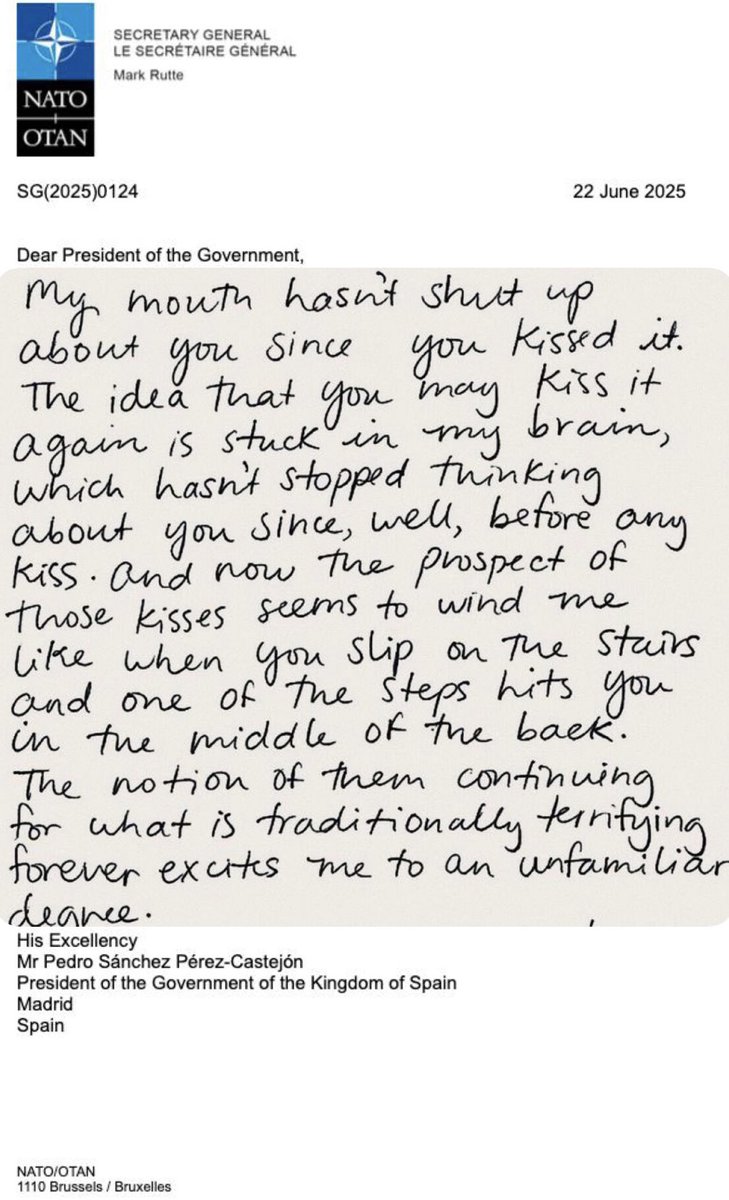 SECRETARY GENERAL
LE SECRÉTAIRE GÉNÉRAL
Mark Rutte
NATO
OTAN
SG(2025)0124 22 June 2025
Dear President of the Government,
My mouth hasn't shut up
about you since you kissed it.
The idea that you may kiss it
again is stuck in my brain,
which hasn't stopped thinking
about you since, well, before any
kiss. And now the prospect of
those kisses seems to wind me
like when you slip on the stairs
and one of the steps hits you
in the middle of the back.
The notion of them continuing
for what is traditionally terrifying
forever excites me to an unfamiliar
degree.
His Excellency
Mr Pedro Sánchez Pérez-Castejón
President of the Government of the Kingdom of Spain
Madrid
Spain
NATO/OTAN
1110 Brussels / Bruxelles